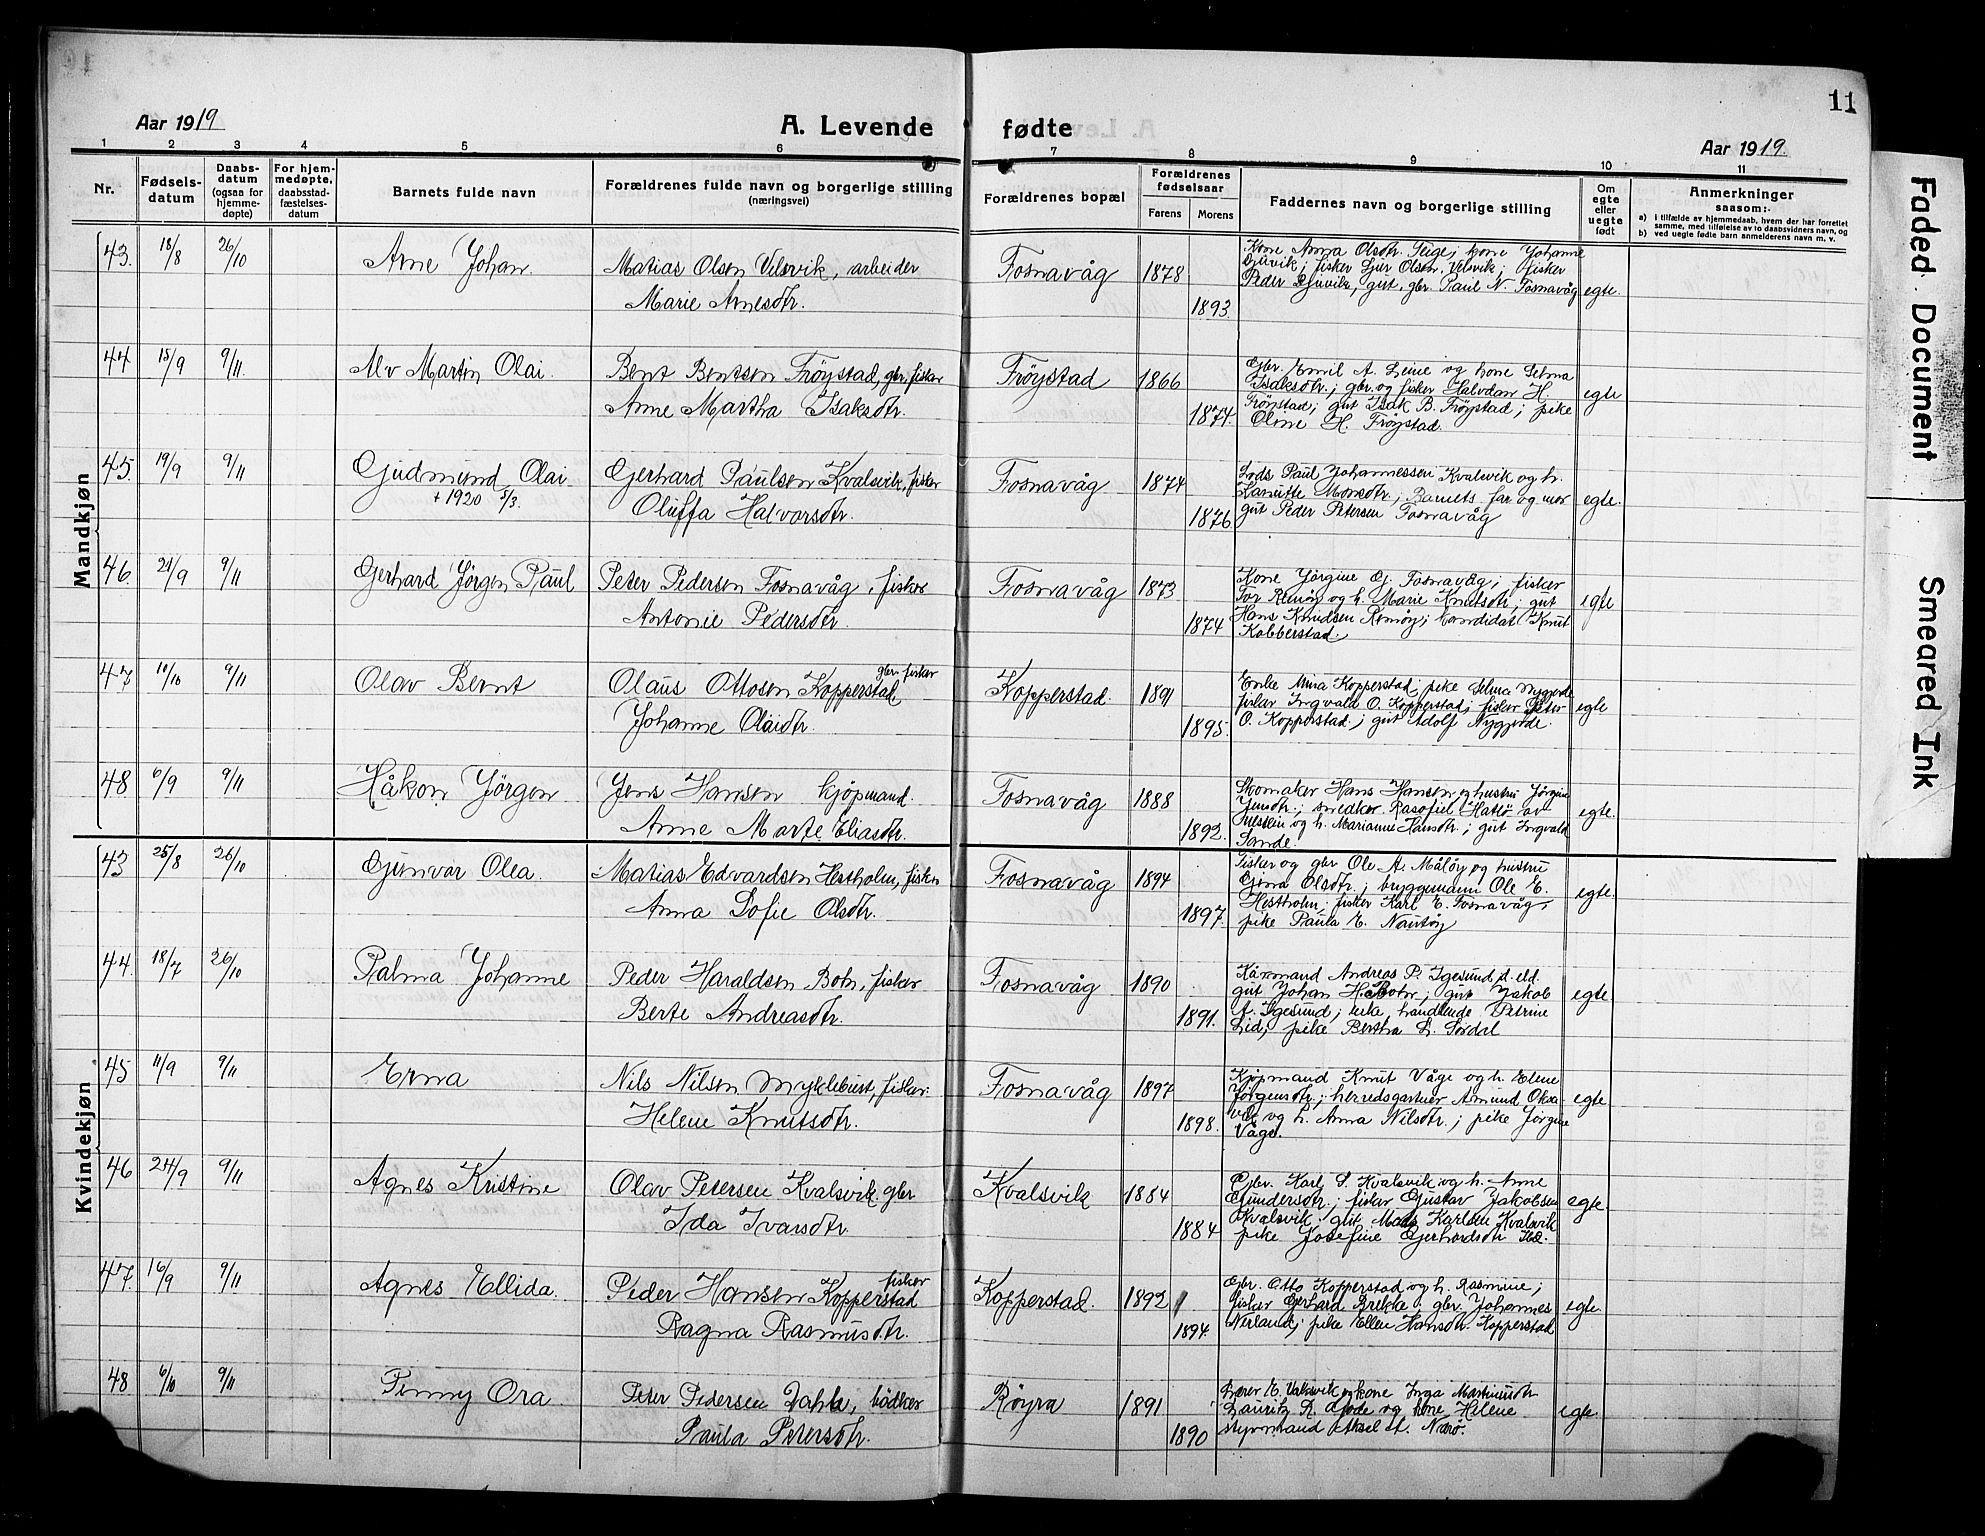 11
Aar 1919
A. Levende fødte
Aar 1919.
1 2 3 4 5 6 7 8 9 10 11
Nr.
Fødsels-
datum
Daabs-
datum
(ogsaa for
hjemme-
døpte)
For hjem-
medøpte,
daabsstad-
fæstelses-
datum
Barnets fulde navn
Forældrenes fulde navn og borgerlige stilling
(næringsvei)
Forældrenes bopæl
Forældrenes
fødselsaar
Farens Morens
Faddernes navn og borgerlige stilling
Om
egte
eller
uegte
født
Anmerkninger
saasom:
a) i tilfælde av hjemmedaab, hvem der har forrettet
samme, med tilføielse av to daabsvidners navn, og
b) ved uegte fødte barn anmelderens navn m. v.
Mandkjøn
43. 18/8 26/10 Arne Johan. Matias Olsen Velsvik, arbeider Fosnavåg 1878 egte.
Marie Arnesdtr. 1893.
Kone Anna Olsdtr. kone Johanne
Djuvik; fisker Olsen Velsvik; fisker
Peder Djuvik, gut, gbr. Paul N. Fosnavåg
44 15/9 9/11. Alv Martin Olai. Bent Bentsen Frøystad, gbr. fisker Frøystad 1866 egte
Anne Martha Isaksdtr. 1874.
Gbr. Emil A. Leine og kone Selma
Isaksdtr.; gbr. og fisker Halvdan H.
Frøystad; gut Isak B. Frøystad; pike
Oline H. Frøystad.
45. 19/9 9/11 Gudmund Olai Gerhard Paulsen Kvalsvik, fisker Fosnavåg 1874 egte.
+ 1920 5/3. Oluffa Halvorsdtr. 1876
Lods Paul Johannessen Kvalsvik og h.
Monsdtr.; Barnets far og mor
gut Peder Petersen Fosnavåg
46. 21/9 9/11 Gerhard Jørgen Paul Peter Pedersen Fosnavåg, fisker Fosnavåg 1873 egte
Antonie Pedersdtr. 1874
Kone Jørgine Fosnavåg; fisker
Remøy og h. Marie Knutsdtr.; gut
Hans Knudsen Remøy; kandidat Knut
Kobberstad.
47 10/10 9/11 Olav Bernt Olaus Ottosen Kopperstad gbr. fisker Kopperstad. 1891 egte
Johanne Olaidtr. 1895.
Enke Kopperstad; pike Selma Nygjerde
fisker Ingvald O. Kopperstad; fisker Peter
O. Kopperstad; gut Adolf Nygjerde.
48. 6/9 9/11 Håkon Jørgen Jens Hansen kjøpmand. Fosnavåg 1888 egte.
Anne Marte Eliasdtr. 1892.
Skomaker Hans Hansen og hustru Jørgine
Jensdtr.; snedker Hatlø av
og h. Marianne Hansdtr.; gut Ingvald
Sande.
Kvindekjøn
43 25/8 26/10 Gunvor Olea. Matias Edvardsen Hestholm, fisker Fosnavåg 1894 egte.
Anna Sofie Olsdtr. 1897.
Fisker og gbr Ole A. Måløy og hustru
Gina Olsdtr.; bryggemann Ole E.
Hestholm; fisker Karl E. Fosnavåg,
pike Paula E. Nautøy
44. 18/7 26/10 Palma Johanne Peder Haraldsen Botn, fisker Fosnavåg 1890 egte.
Berte Andreasdtr. 1891.
Kårmand Andreas P. Igesund, d. eld.
gut Johan H. Botn; gut Jakob
A. Igesund; enke handlende Petrine
Lid; pike Bertha L. Sørdal
45 11/9 9/11 Erna Nils Nilsen Myklebust, fisker. Fosnavåg 1897 egte
Helene Knutsdtr. 1898.
Kjøpmand Knut Våge og h. Elene
Jørgensdtr.; herredsgartner Amund
og h. Anna Nilsdtr.; pike Jørgine
Våge.
46 24/9 9/11 Agnes Kristine Olav Petersen Kvalsvik gbr Kvalsvik 1884 egte.
Ida Ivarsdtr 1884
Gbr. Karl S. Kvalsvik og h. Anne
Gundersdtr.; fisker Gustav Jakobsen
Kvalsvik; gut Mads Karlsen Kvalsvik
pike Josefine Gerhardsdtr
47. 16/9 9/11 Agnes Ellida. Peder Hansen Kopperstad fisker Kopperstad. 1892 egte.
Ragna Rasmusdtr. 1894.
Gbr. Otto Kopperstad og h. Rasmine;
fisker Gerhard Brekke, gbr. Johannes
Nerland; pike Ellen Hansdtr. Kopperstad
48 6/10 9/11 Penny Ora. Peter Pedersen Dahle, bødker Røyra 1891 egte.
Paula Petersdtr. 1890
Lærer E. Valsvik og kone Inga Martinusdtr
Lauritz R. og kone Helene
styrmand Aksel
Faded Document
Smeared Ink